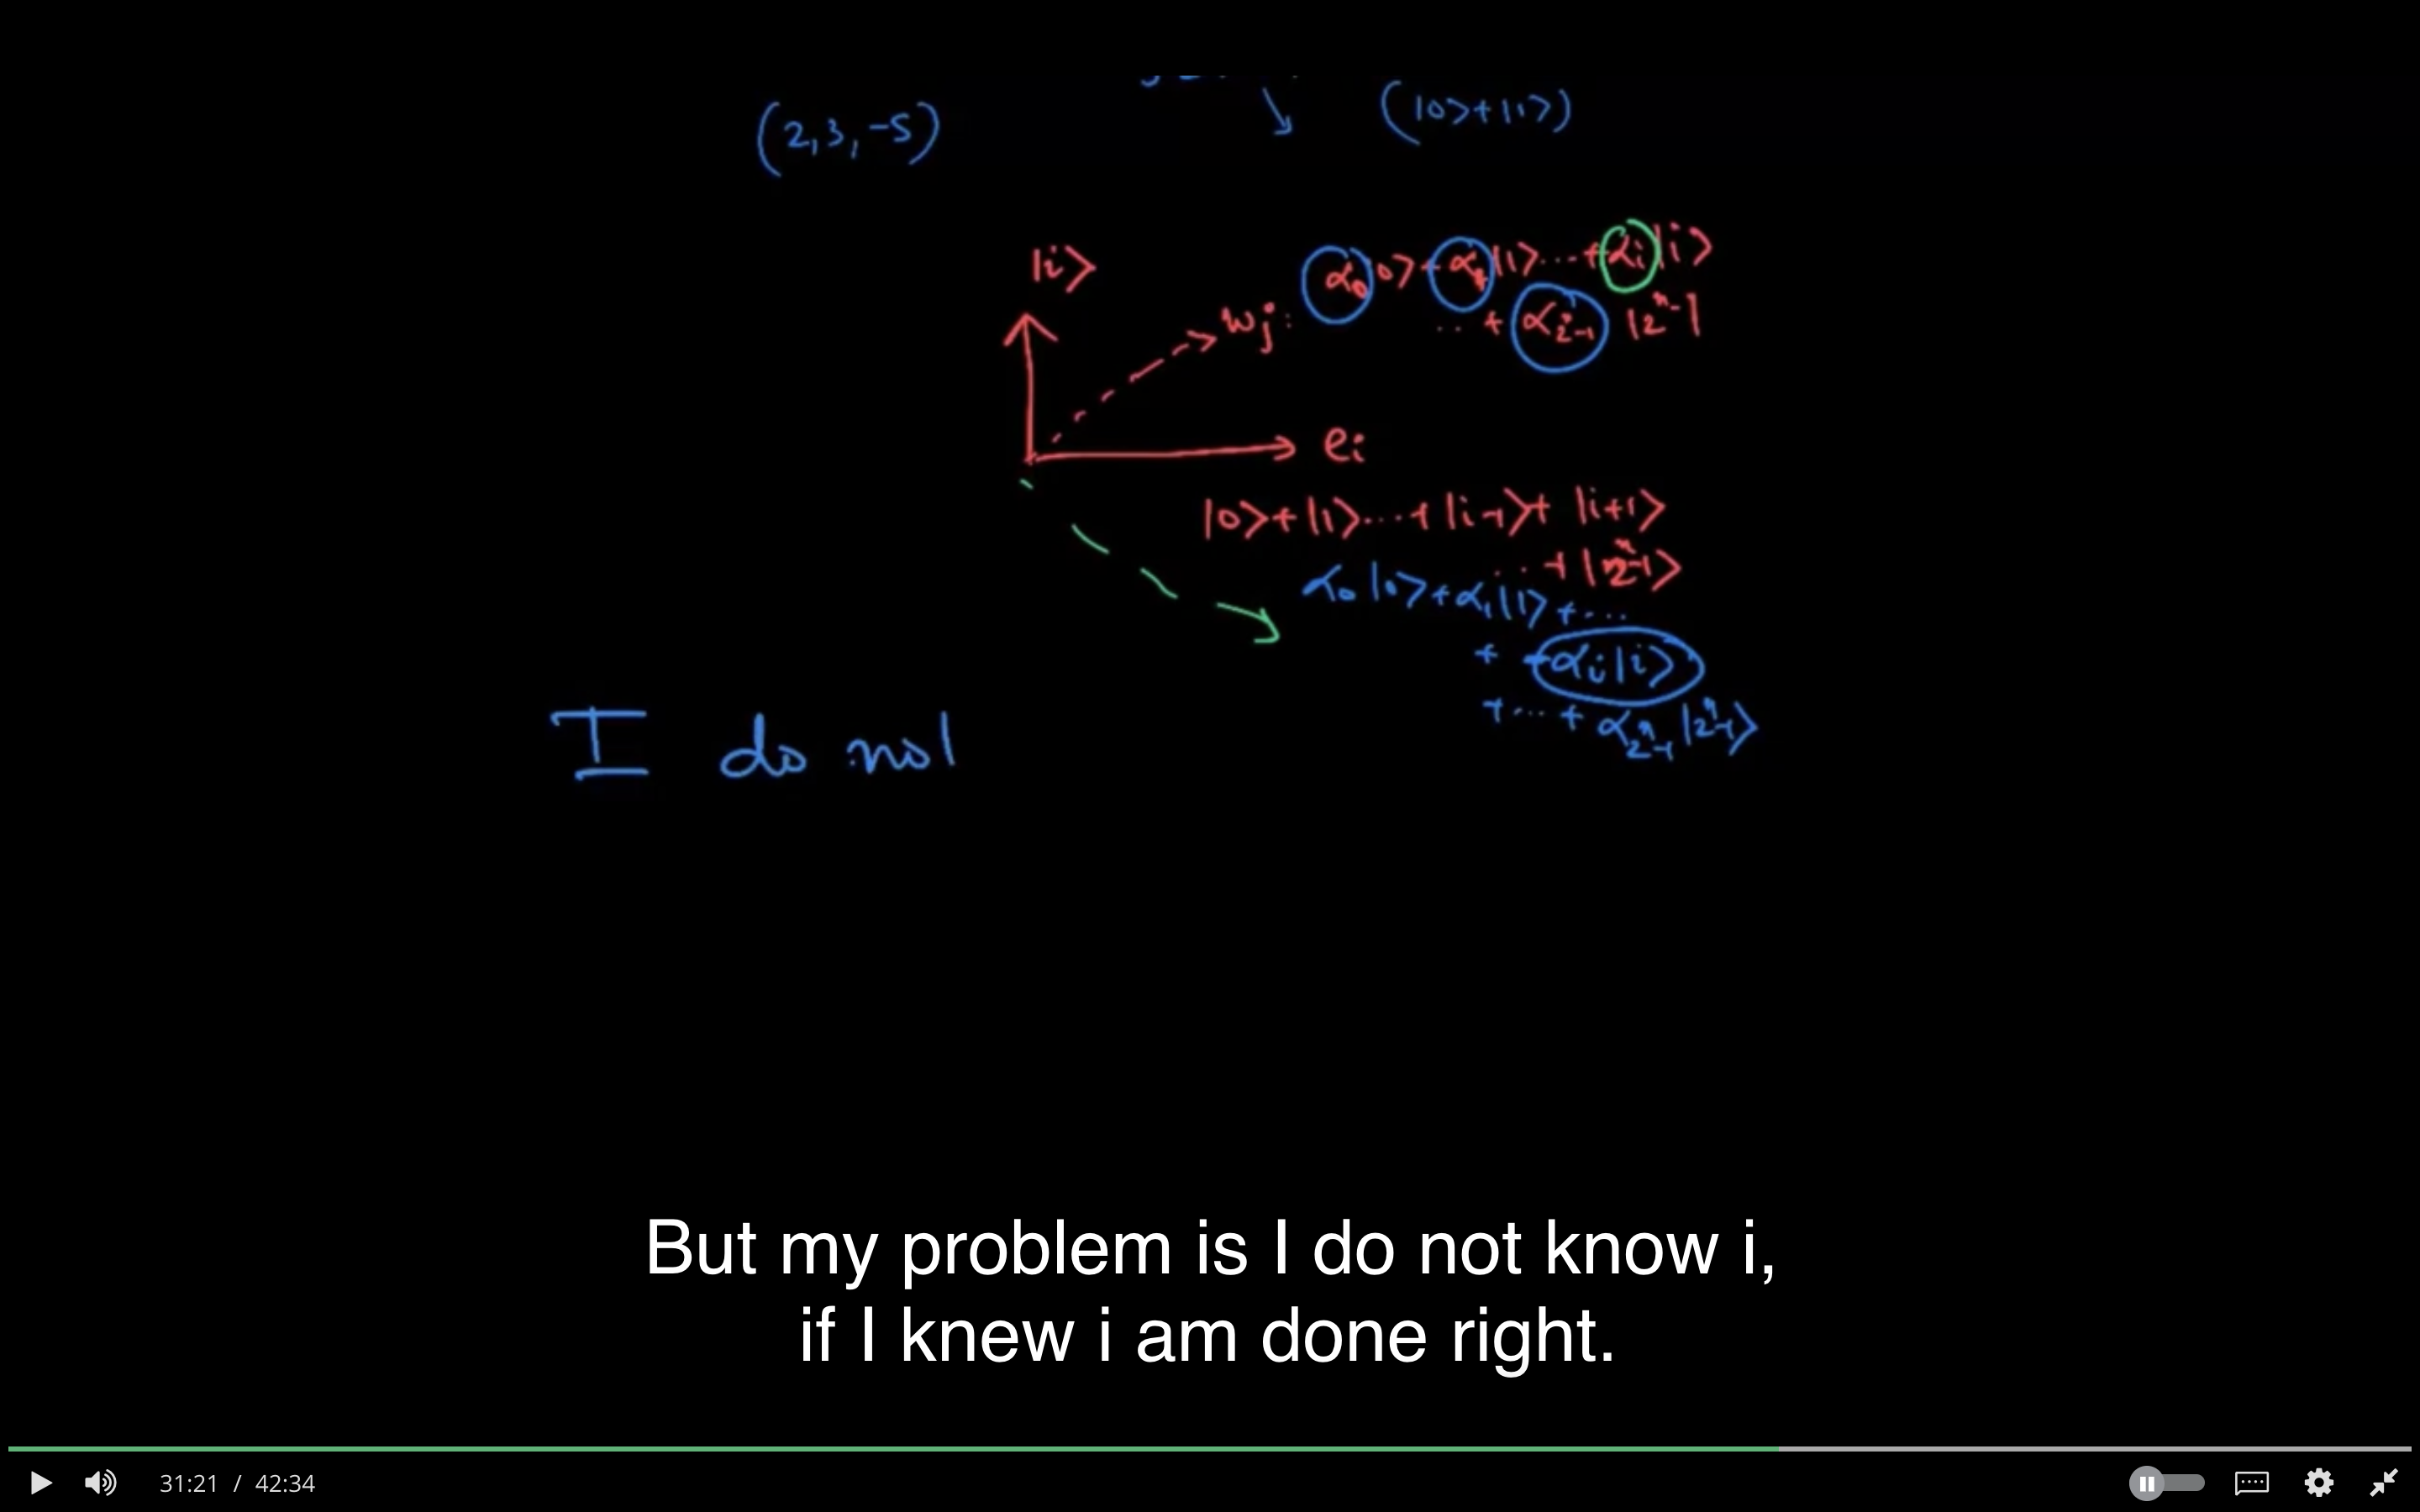 (2, 3, -5)
(|0>+|1>)
|i>
α₀|0> + α₁|1> ... + αᵢ|i>
wⱼ:
.. + α_{2ⁿ-1} |2ⁿ-1
eᵢ
|0>+|1>...+|i-1>+ |i+1>
... + |2ⁿ-1>
α₀|0>+α₁|1>+...
+ -αᵢ|i>
+...+ α_{2ⁿ-1}|2ⁿ-1>
I do not
But my problem is I do not know i,
if I knew i am done right.
31:21 / 42:34